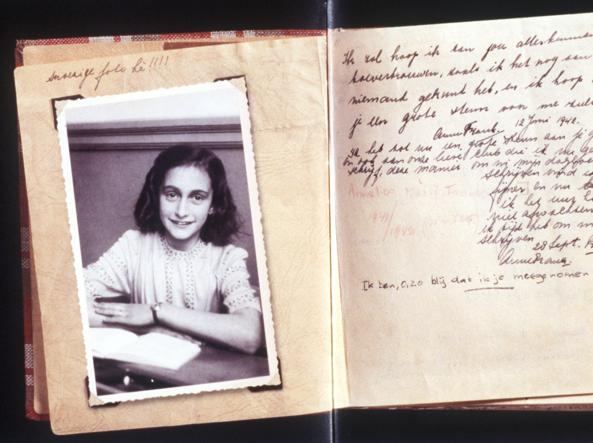 snoezige foto hè!!!!
Ik zal hoop ik aan jou alles kunnen
toevertrouwen, zoals ik het nog aan
niemand gekund heb, en ik hoop
je een grote steun voor me zult
Anne Frank. 12 Juni 1942.
Ik heb tot nu een grote steun aan je g
en ook aan onze lieve club die ik nu ge
schrijf, deze manier om in mijn dagboek
schrijven vind i
fijner en nu
ik het uur
tijd
schrijven
28 Sept. 19
Anne Frank
Ik ben, o, zo blij dat ik je meegenomen